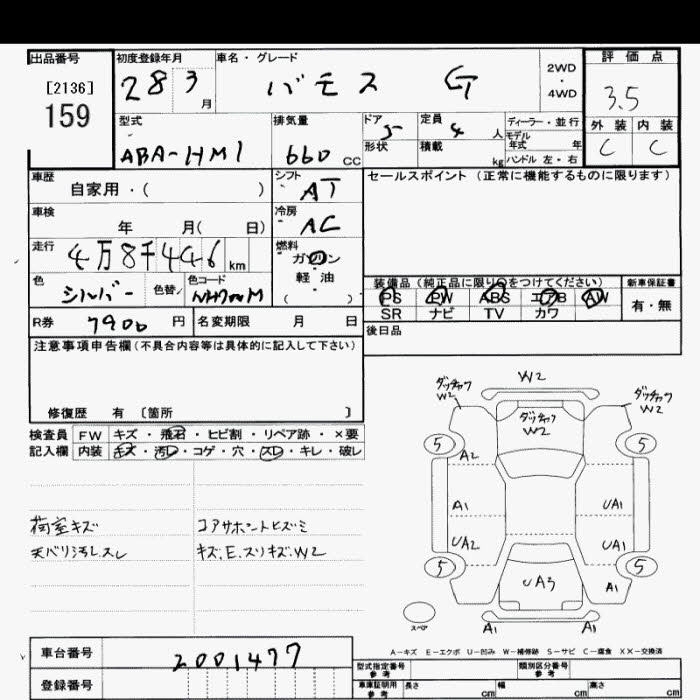 出品番号
[2136]
159
初度登録年月
28 3 月
車名・グレード
バモス G
2WD
・
4WD
評価点
3.5
外装 内装
C C
型式
ABA-HM1
排気量
660 CC
ドア 5
形状
定員 4 人
積載 kg
ディーラー・並行
モデル
年式 年
ハンドル 左・右
車歴
自家用・( )
シフト
AT
セールスポイント (正常に機能するものに限ります)
車検
年 月( 日)
冷房
AC
走行
4万8千446 km
燃料
ガソリン
軽油
( )
色
シルバー
色替
色コード
NH700M
装備品 (純正品に限り○をつけてください)
新車保証書
PS PW ABS エアB AW
有・無
SR ナビ TV カワ
R券 7900 円
名変期限 月 日
後日品
注意事項申告欄(不具合内容等は具体的に記入して下さい)
修復歴 有 〔箇所 〕
検査員 FW キズ・飛石・ヒビ割・リペア跡・×要
記入欄 内装 キズ・汚レ・コゲ・穴・スレ・キレ・破レ
荷室キズ
天バリ汚レスレ
コアサポートヒズミ
キズ.E.スリキズ.W2
W2
ダッチャク
W2
ダッチャク
W2
ダッチャク
W2
5 5
A2
A1 UA1
UA2 UA1
5 5
UA3 A1
スペア
A1 A1
A-キズ E-エクボ U-凹み W-補修跡 S-サビ C-腐食 XX-交換済
車台番号
2001477
登録番号
型式指定番号
参考
類別区分番号
参考
車庫証明用
参考
長さ cm 幅 cm 高さ cm